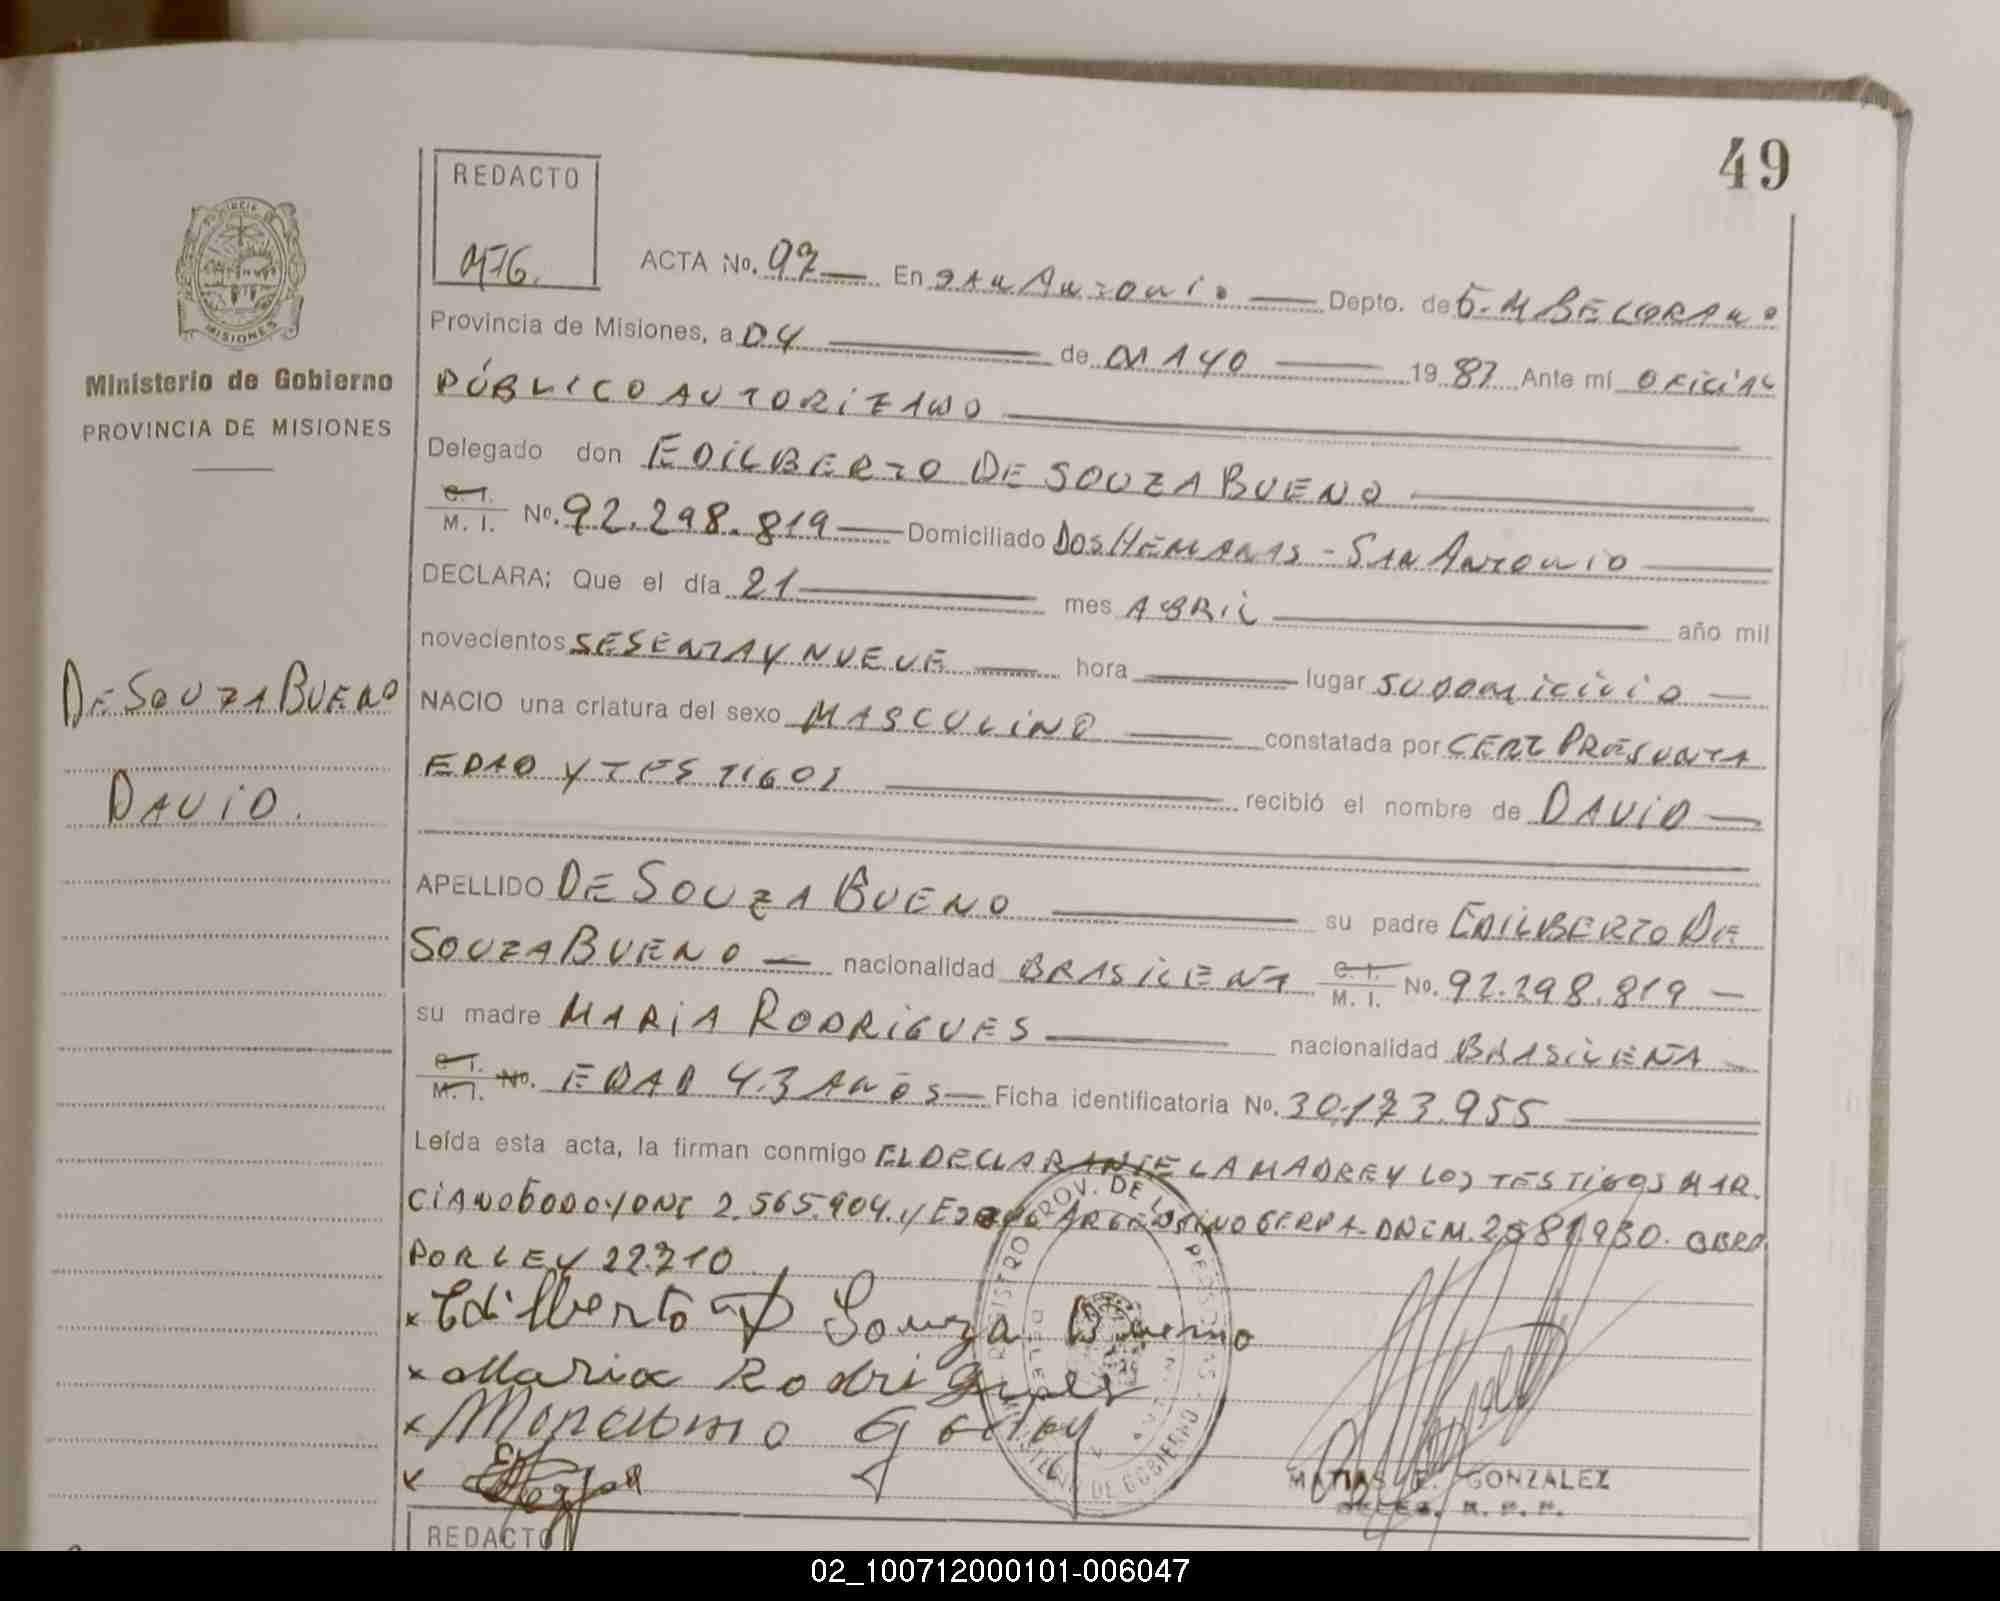 49
REDACTO
MEG.
PROVINCIA DE
MISIONES
Ministerio de Gobierno
PROVINCIA DE MISIONES
DE SOUZA BUENO
DAVID.
ACTA No. 97 En SAN ANTONIO Depto. de G. M BELGRANO
Provincia de Misiones, a 04 de MAYO 19 87 Ante mí OFICIAL
PÚBLICO AUTORIZADO
Delegado don EDILBERTO DE SOUZA BUENO
C. I. / M. I. No. 92.298.819 Domiciliado DOS HEMANAS - SAN ANTONIO
DECLARA: Que el día 21 mes ABRIL año mil
novecientos SESENTA Y NUEVE hora lugar SU DOMICILIO
NACIO una criatura del sexo MASCULINO constatada por CERT PRESUNTA
EDAD Y TESTIGOS recibió el nombre de DAVID
APELLIDO DE SOUZA BUENO su padre EDILBERTO DE
SOUZA BUENO nacionalidad BRASILEÑA C. I. / M. I. No. 92.298.819
su madre MARIA RODRIGUES nacionalidad BRASILEÑA
C. I. / M. I. No. EDAD 43 AÑOS Ficha identificatoria No. 30.173.955
Leída esta acta, la firman conmigo EL DECLARANTE LA MADRE Y LOS TESTIGOS MAR
CIANO GODOY DNI 2.565.904. Y ARGENTINO SERPA - DNI M. 2581930. OBRA
POR LEY 22.710
x Edilberto D Souza Bueno
x Maria Rodrigues
x Marciano Godoy
x
REGISTRO PROV. DE LAS PERSONAS
MINISTERIO DE GOBIERNO
MATIAS E. GONZALEZ
DELEG. R. P. P.
REDACTO
02_100712000101-006047